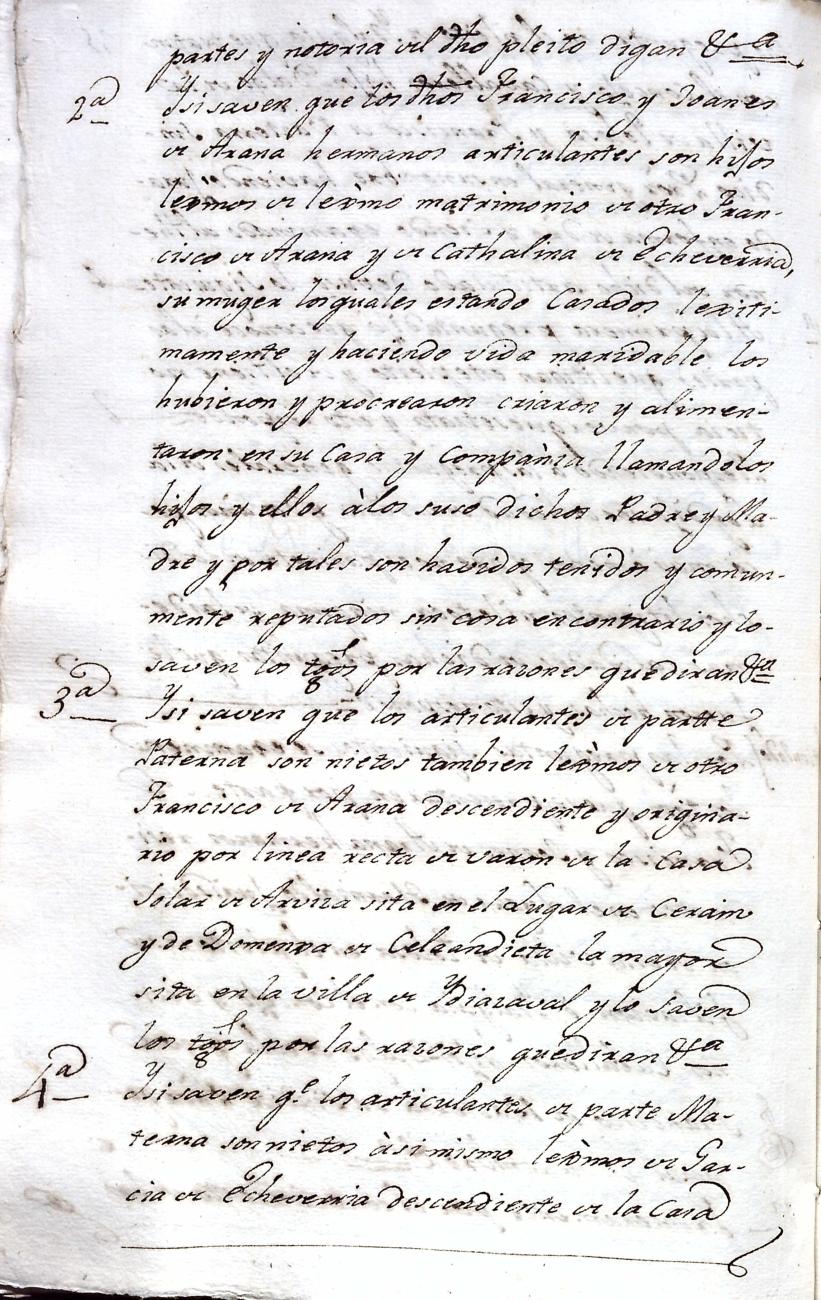 partes y notoria del dho pleito digan &a
2a Ysi saven que los dhos Francisco y Joanes
de Arana hermanos articulantes son hijos
lexmos de lexmo matrimonio de otro Fran-
cisco de Arana y de Cathalina de Echeverria,
su muger los quales estando Casados lexiti-
mamente y haciendo vida maridable los
hubieron y procrearon criaron y alimen-
taron en su Casa y Compañia llamandolos
hijos y ellos à los suso dichos Padre y Ma-
dre y por tales son havidos tenidos y comun-
mente reputados sin cosa en contrario y lo-
saven los tgos por las razones que diran &a
3a Ysi saven que los articulantes de partte
Paterna son nietos tambien lexmos de otro
Francisco de Arana descendiente y origina-
rio por linea recta de varon de la Casa
Solar de Arviza sita en el Lugar de Cerain
y de Domenxa de Celaandieta la mayor
sita en la villa de Ydiazaval y lo saven
los tgos por las razones que diran &a
4a Ysi saven qe los articulantes de parte Ma-
terna son nietos àsimismo lexmos de Gar-
cia de Echeverria descendiente de la Casa